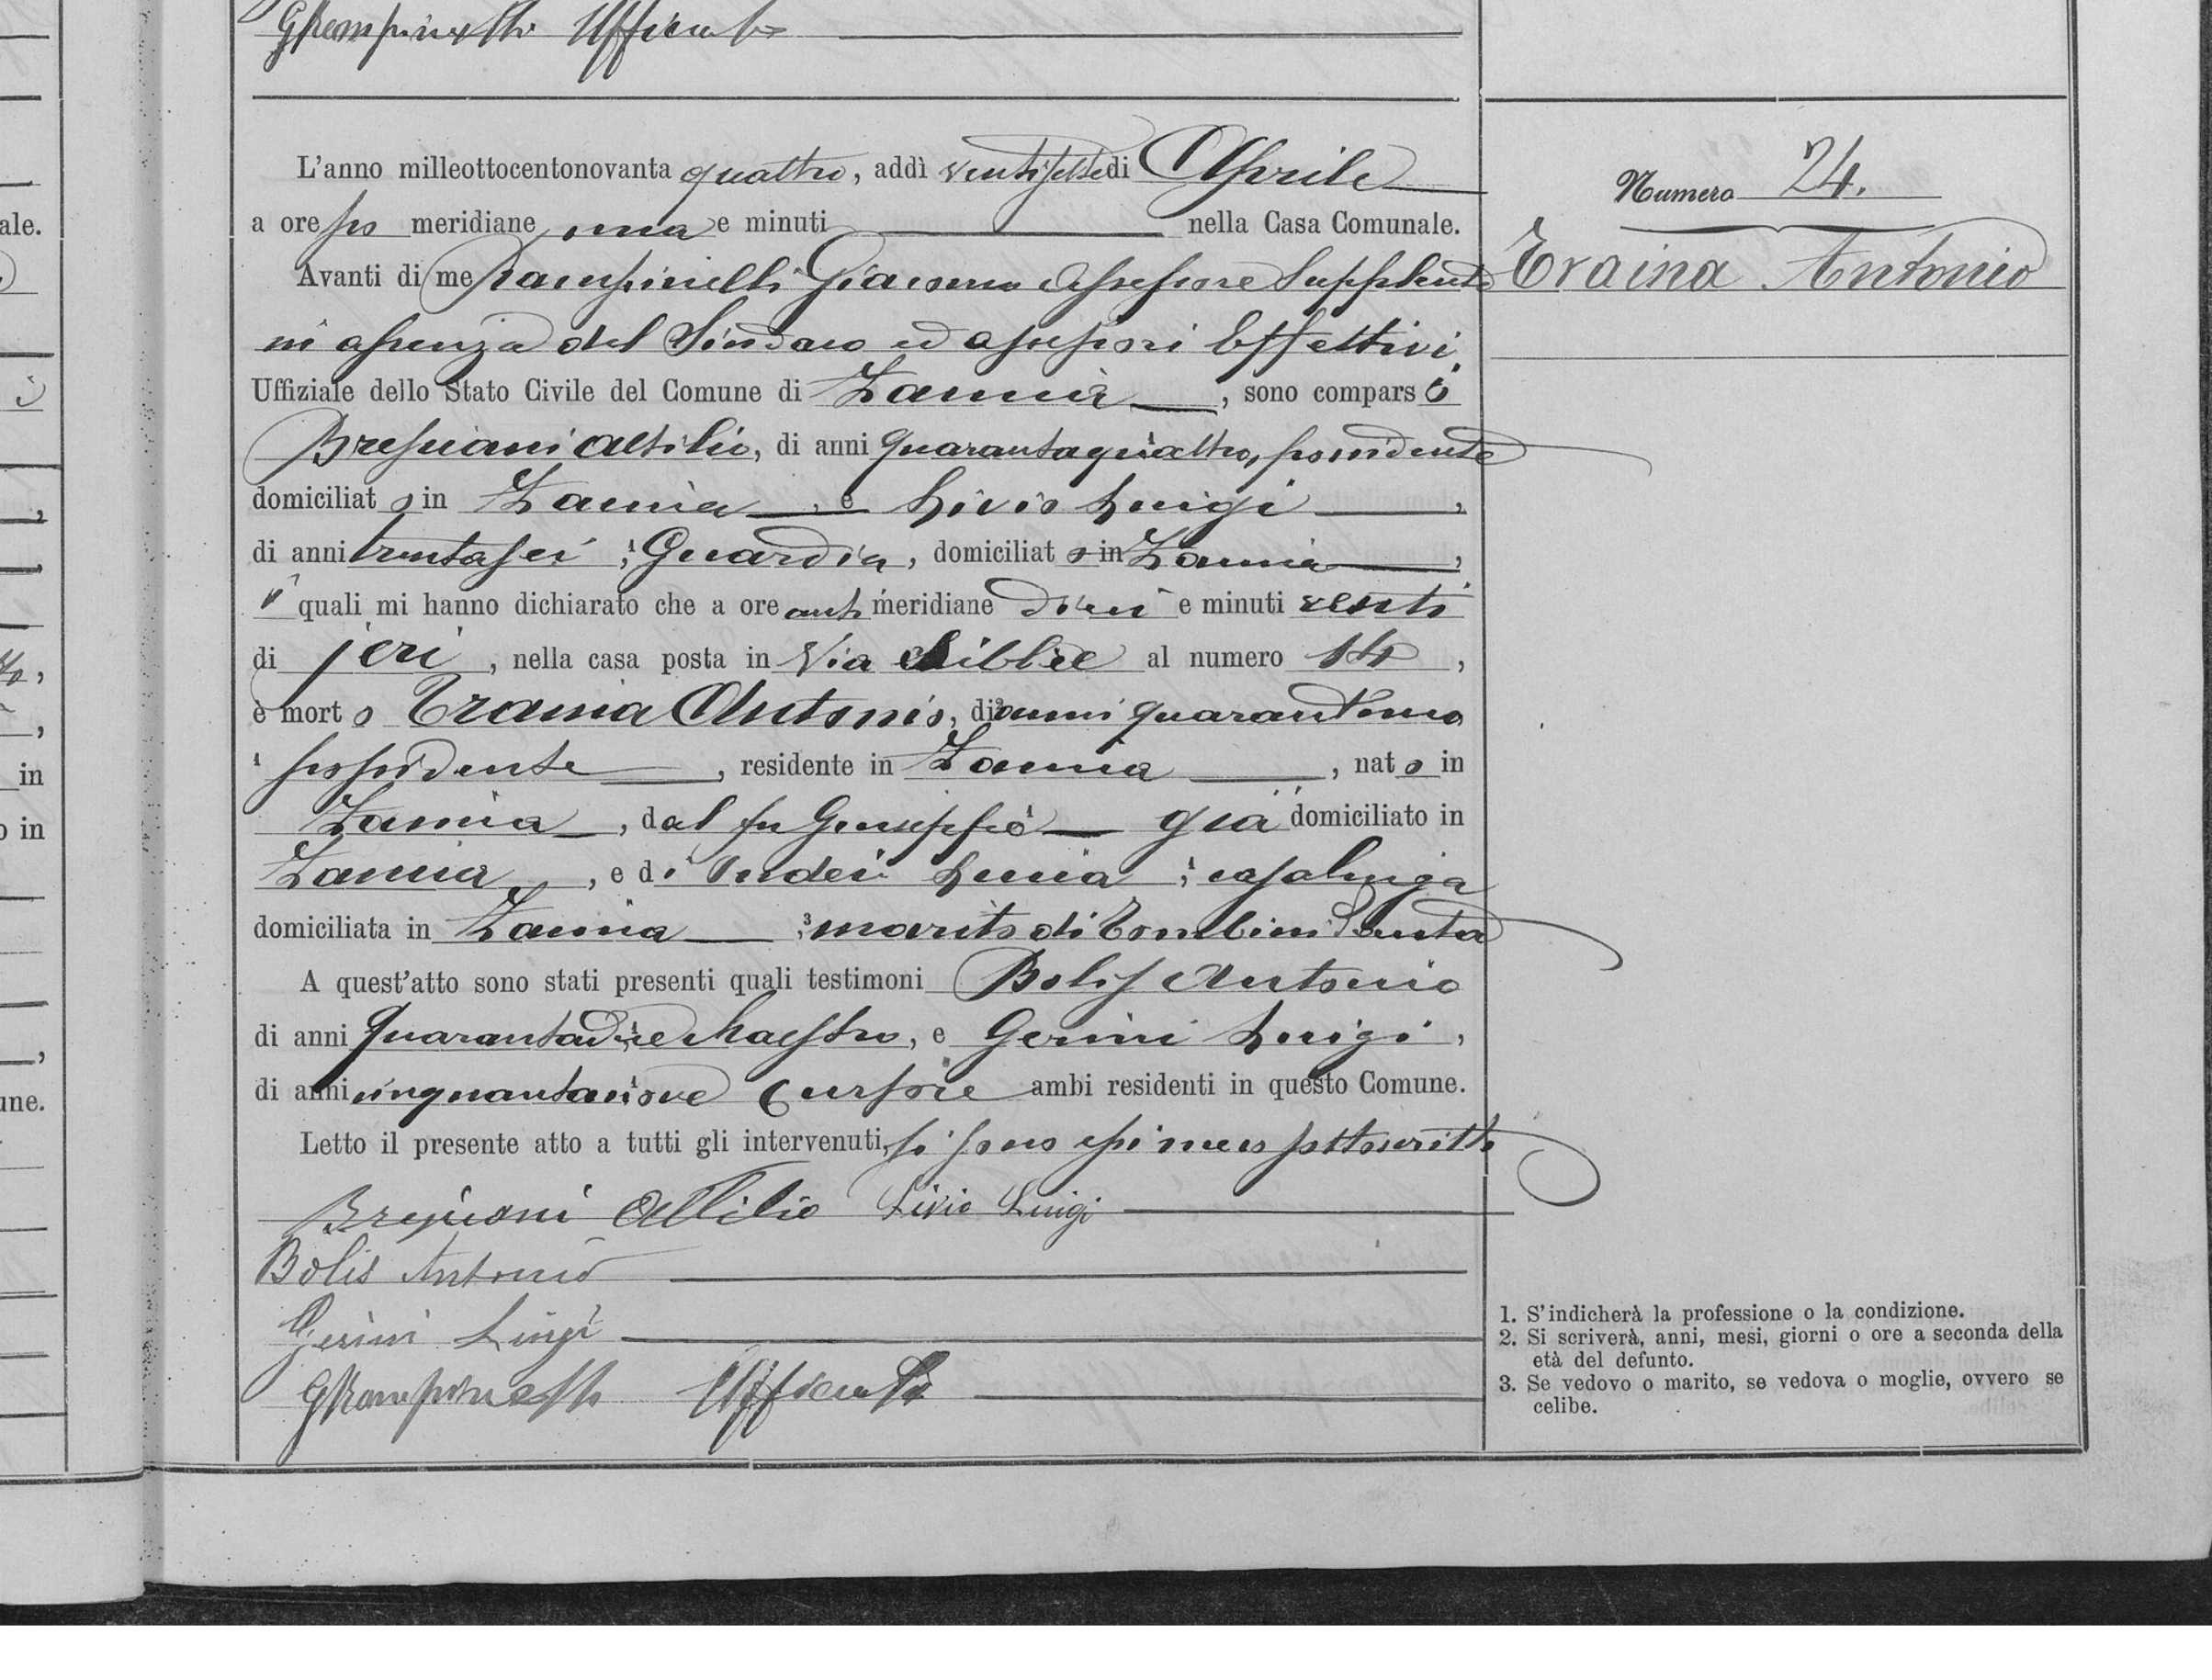 GRampinelli Ufficiale
L'anno milleottocentonovanta quattro, addì ventisette di Aprile
a ore po meridiane una e minuti nella Casa Comunale.
Avanti di me Rampinelli Giacomo Assessore Supplente
in assenza del Sindaco ed assessori Effettivi
Uffiziale dello Stato Civile del Comune di Zannia, sono comparsi
Bresciani Attilio, di anni quarantaquattro, possidente
domiciliato in Zannia, e Livio Luigi,
di anni trentasei, Guardia, domiciliato in Zannia,
i quali mi hanno dichiarato che a ore anti meridiane dieci e minuti venti
di jeri, nella casa posta in Via al numero 14,
è morto Traina Antonio, di anni quarantuno
possidente, residente in Zannia, nato in
Zannia, dal fu Giuseppe già domiciliato in
Zannia, e di Lucia, casalinga
domiciliata in Zannia, marito di Tombini Santa
A quest'atto sono stati presenti quali testimoni Bolis Antonio
di anni quarantadue Maestro, e Gerini Luigi,
di anni cinquantanove Cursore ambi residenti in questo Comune.
Letto il presente atto a tutti gli intervenuti, si sono essi meco sottoscritti
Bresciani Attilio Livio Luigi
Bolis Antonio
Gerini Luigi
GRampinelli Ufficiale
Numero 24.
Traina Antonio
1. S'indicherà la professione o la condizione.
2. Si scriverà, anni, mesi, giorni o ore a seconda della
età del defunto.
3. Se vedovo o marito, se vedova o moglie, ovvero se
celibe.
ale.
in
o in
une.